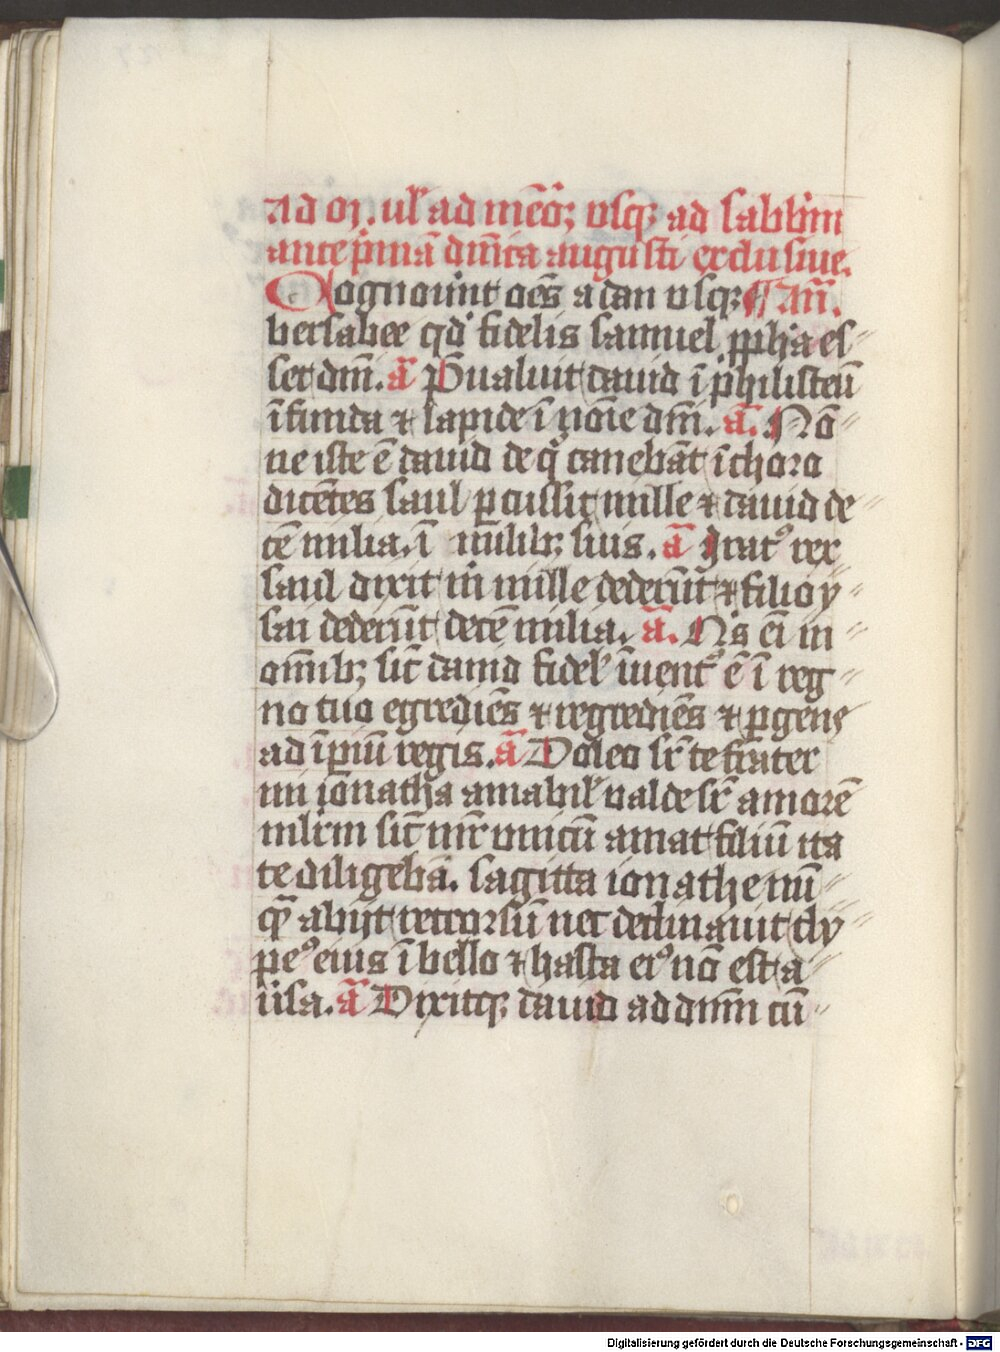 ad or. ul' ad meōr; usq; ad sabb'm
ante p'mā dm̄ca augusti exclusiue.
Cognouīnt oēs a dan usq; Añ.
bersabee qd' fidelis samuel pph'a es
set dm̄. ā P̄ualuit dauid ī philisteū
ī funda ⁊ lapide ī noīe dm̄. ā. Nō
ne iste ē dauid de q̊ canebāt ī choro
dicētes saul p̱cussit mille ⁊ dauid de
cē milia. ī milib; suis. ā Irat᷒ rex
saul dixit m̄ mille dederūt ⁊ filio y
sai dederūt decē milia. ā. N's ei in
om̄ib; sic̄ dauid fidel' īuent᷒ ē ī reg
no tuo egrediēs ⁊ regrediēs ⁊ p̱gens
ad īpiū regis. ā Doleo sr̄ te frater
mi ionatha amabil' ualde sr̄ amorē
mlr̄m sic̄ mr̄ unicū amat filiū ita
te diligebā. sagitta ionathe nū
q̄ abijt retrorsū nec declinauit cly
pe᷒ eius ī bello ⁊ hasta ei᷒ nō est a
ūsa. ā Dixitq; dauid ad dn̄m cū
Digitalisierung gefördert durch die Deutsche Forschungsgemeinschaft - DFG